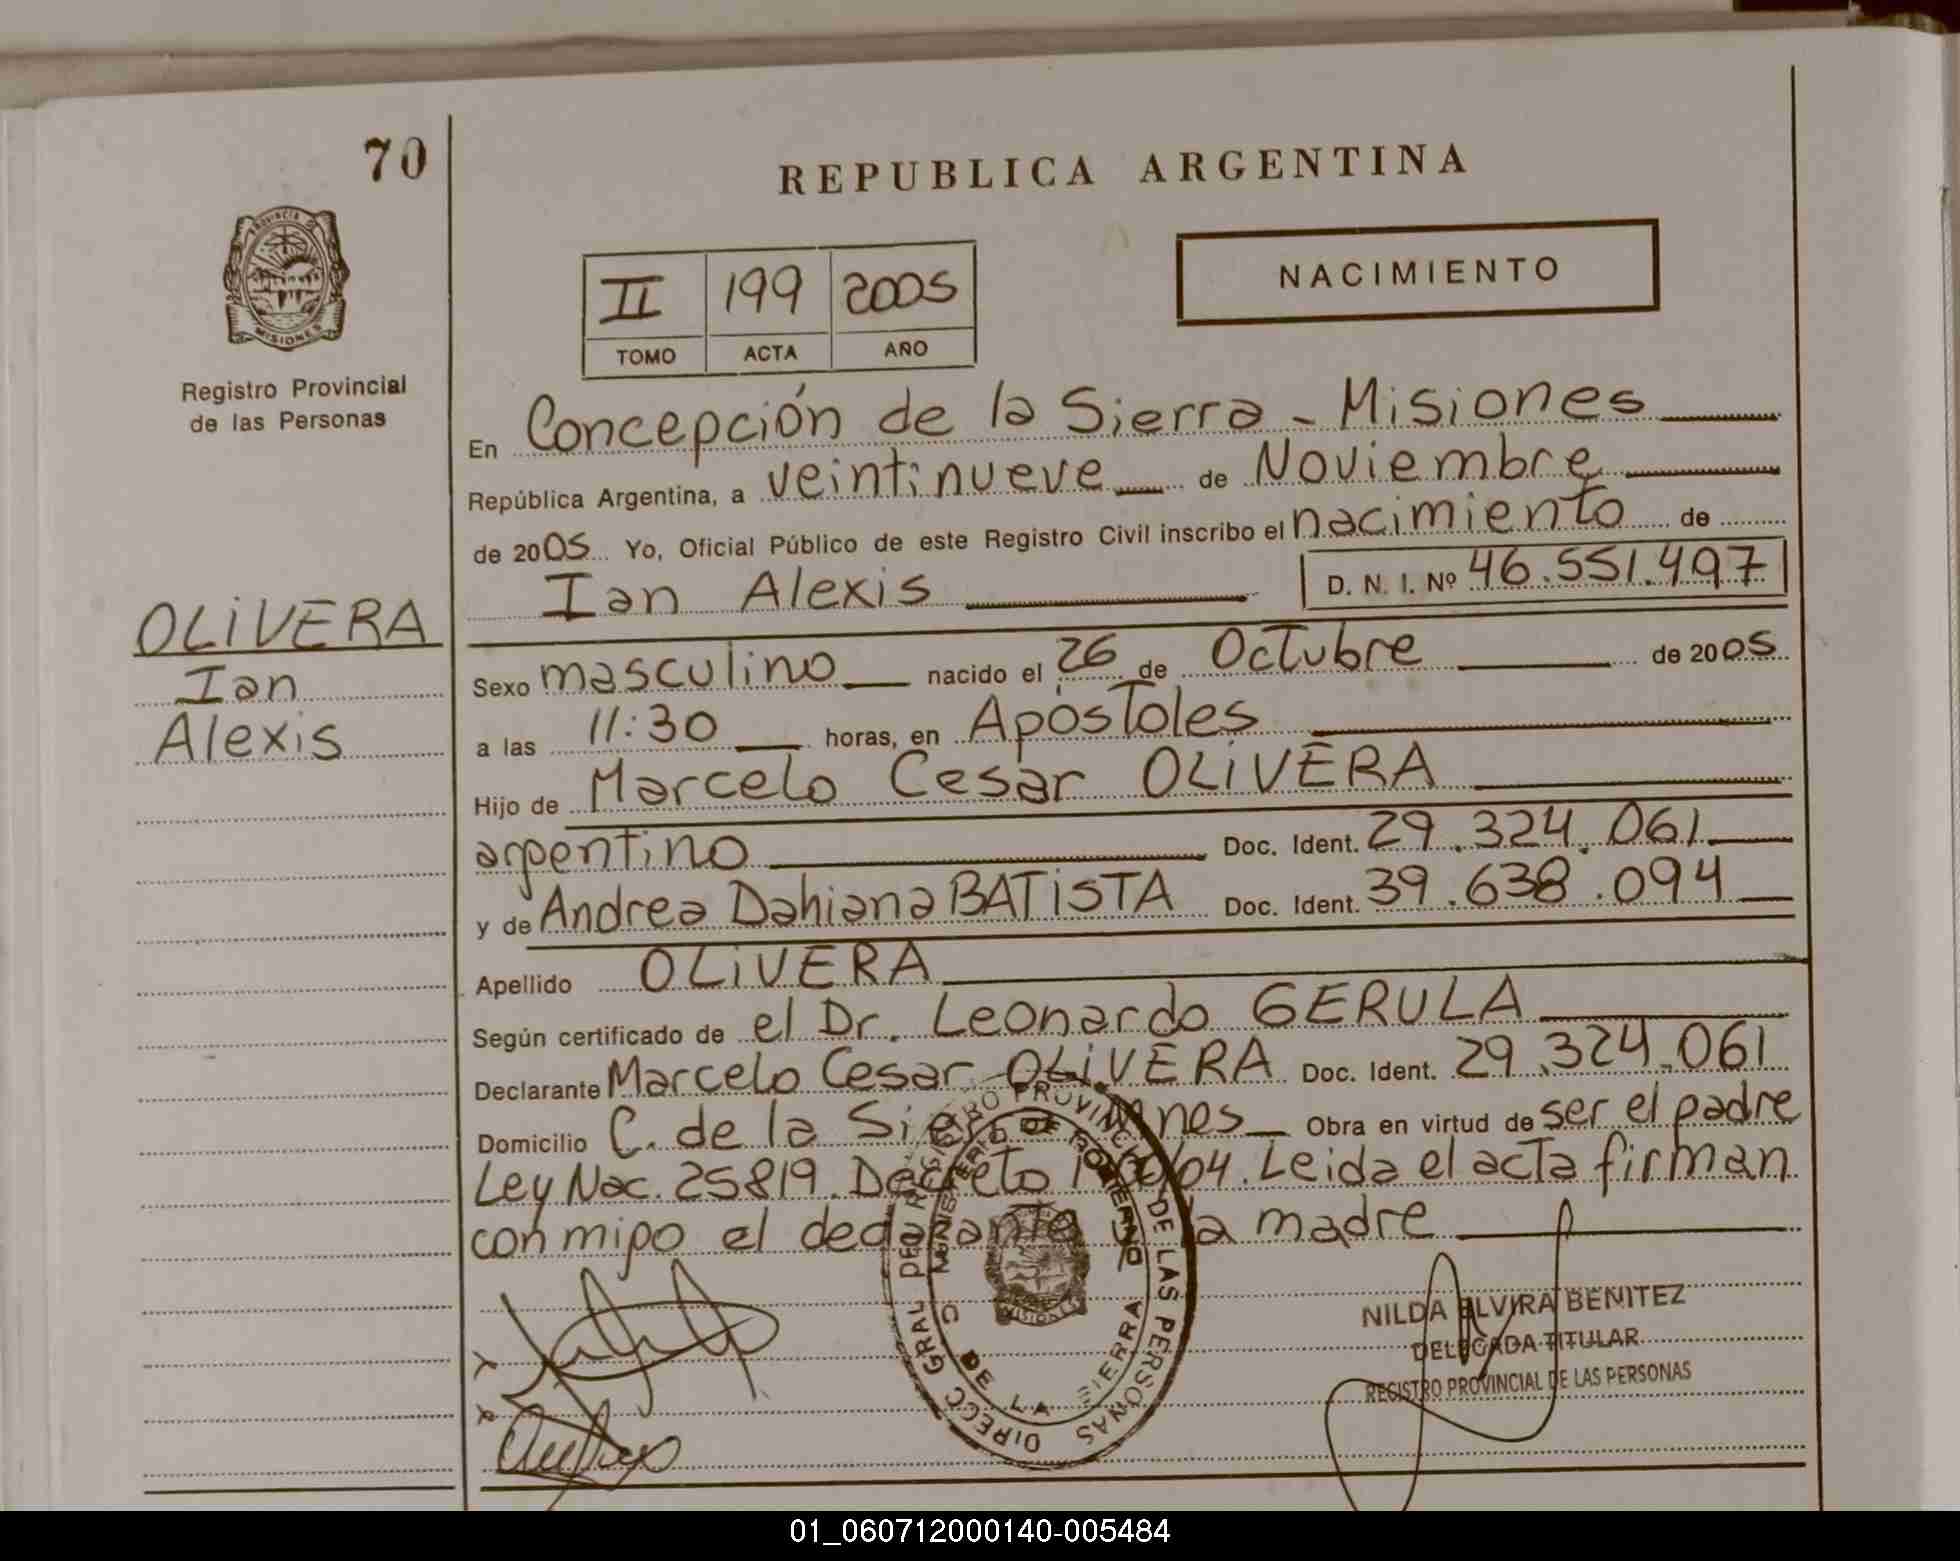 70
REPUBLICA ARGENTINA
PROVINCIA DE
MISIONES
Registro Provincial
de las Personas
II 199 2005
TOMO ACTA AÑO
NACIMIENTO
En Concepción de la Sierra - Misiones
República Argentina, a veintinueve de Noviembre
de 2005 Yo, Oficial Público de este Registro Civil inscribo el nacimiento de
Ian Alexis D. N. I. Nº 46.551.497
OLIVERA
Ian
Alexis
Sexo masculino nacido el 26 de Octubre de 2005
a las 11:30 horas, en Apóstoles
Hijo de Marcelo Cesar OLIVERA
argentino Doc. Ident. 29.324.061
y de Andrea Dahiana BATISTA Doc. Ident. 39.638.094
Apellido OLIVERA
Según certificado de el Dr. Leonardo GERULA
Declarante Marcelo Cesar OLIVERA Doc. Ident. 29.324.061
Domicilio C. de la Sierra Obra en virtud de ser el padre
Ley Nac. 25819. Decreto Leida el acta firman
conmigo el declarante y la madre
DIRECC GRAL DEL REGISTRO PROVINCIAL DE LAS PERSONAS
MINISTERIO DE GOBIERNO
C DE LA SIERRA
MISIONES
NILDA ELVIRA BENITEZ
DELEGADA TITULAR
REGISTRO PROVINCIAL DE LAS PERSONAS
01_060712000140-005484